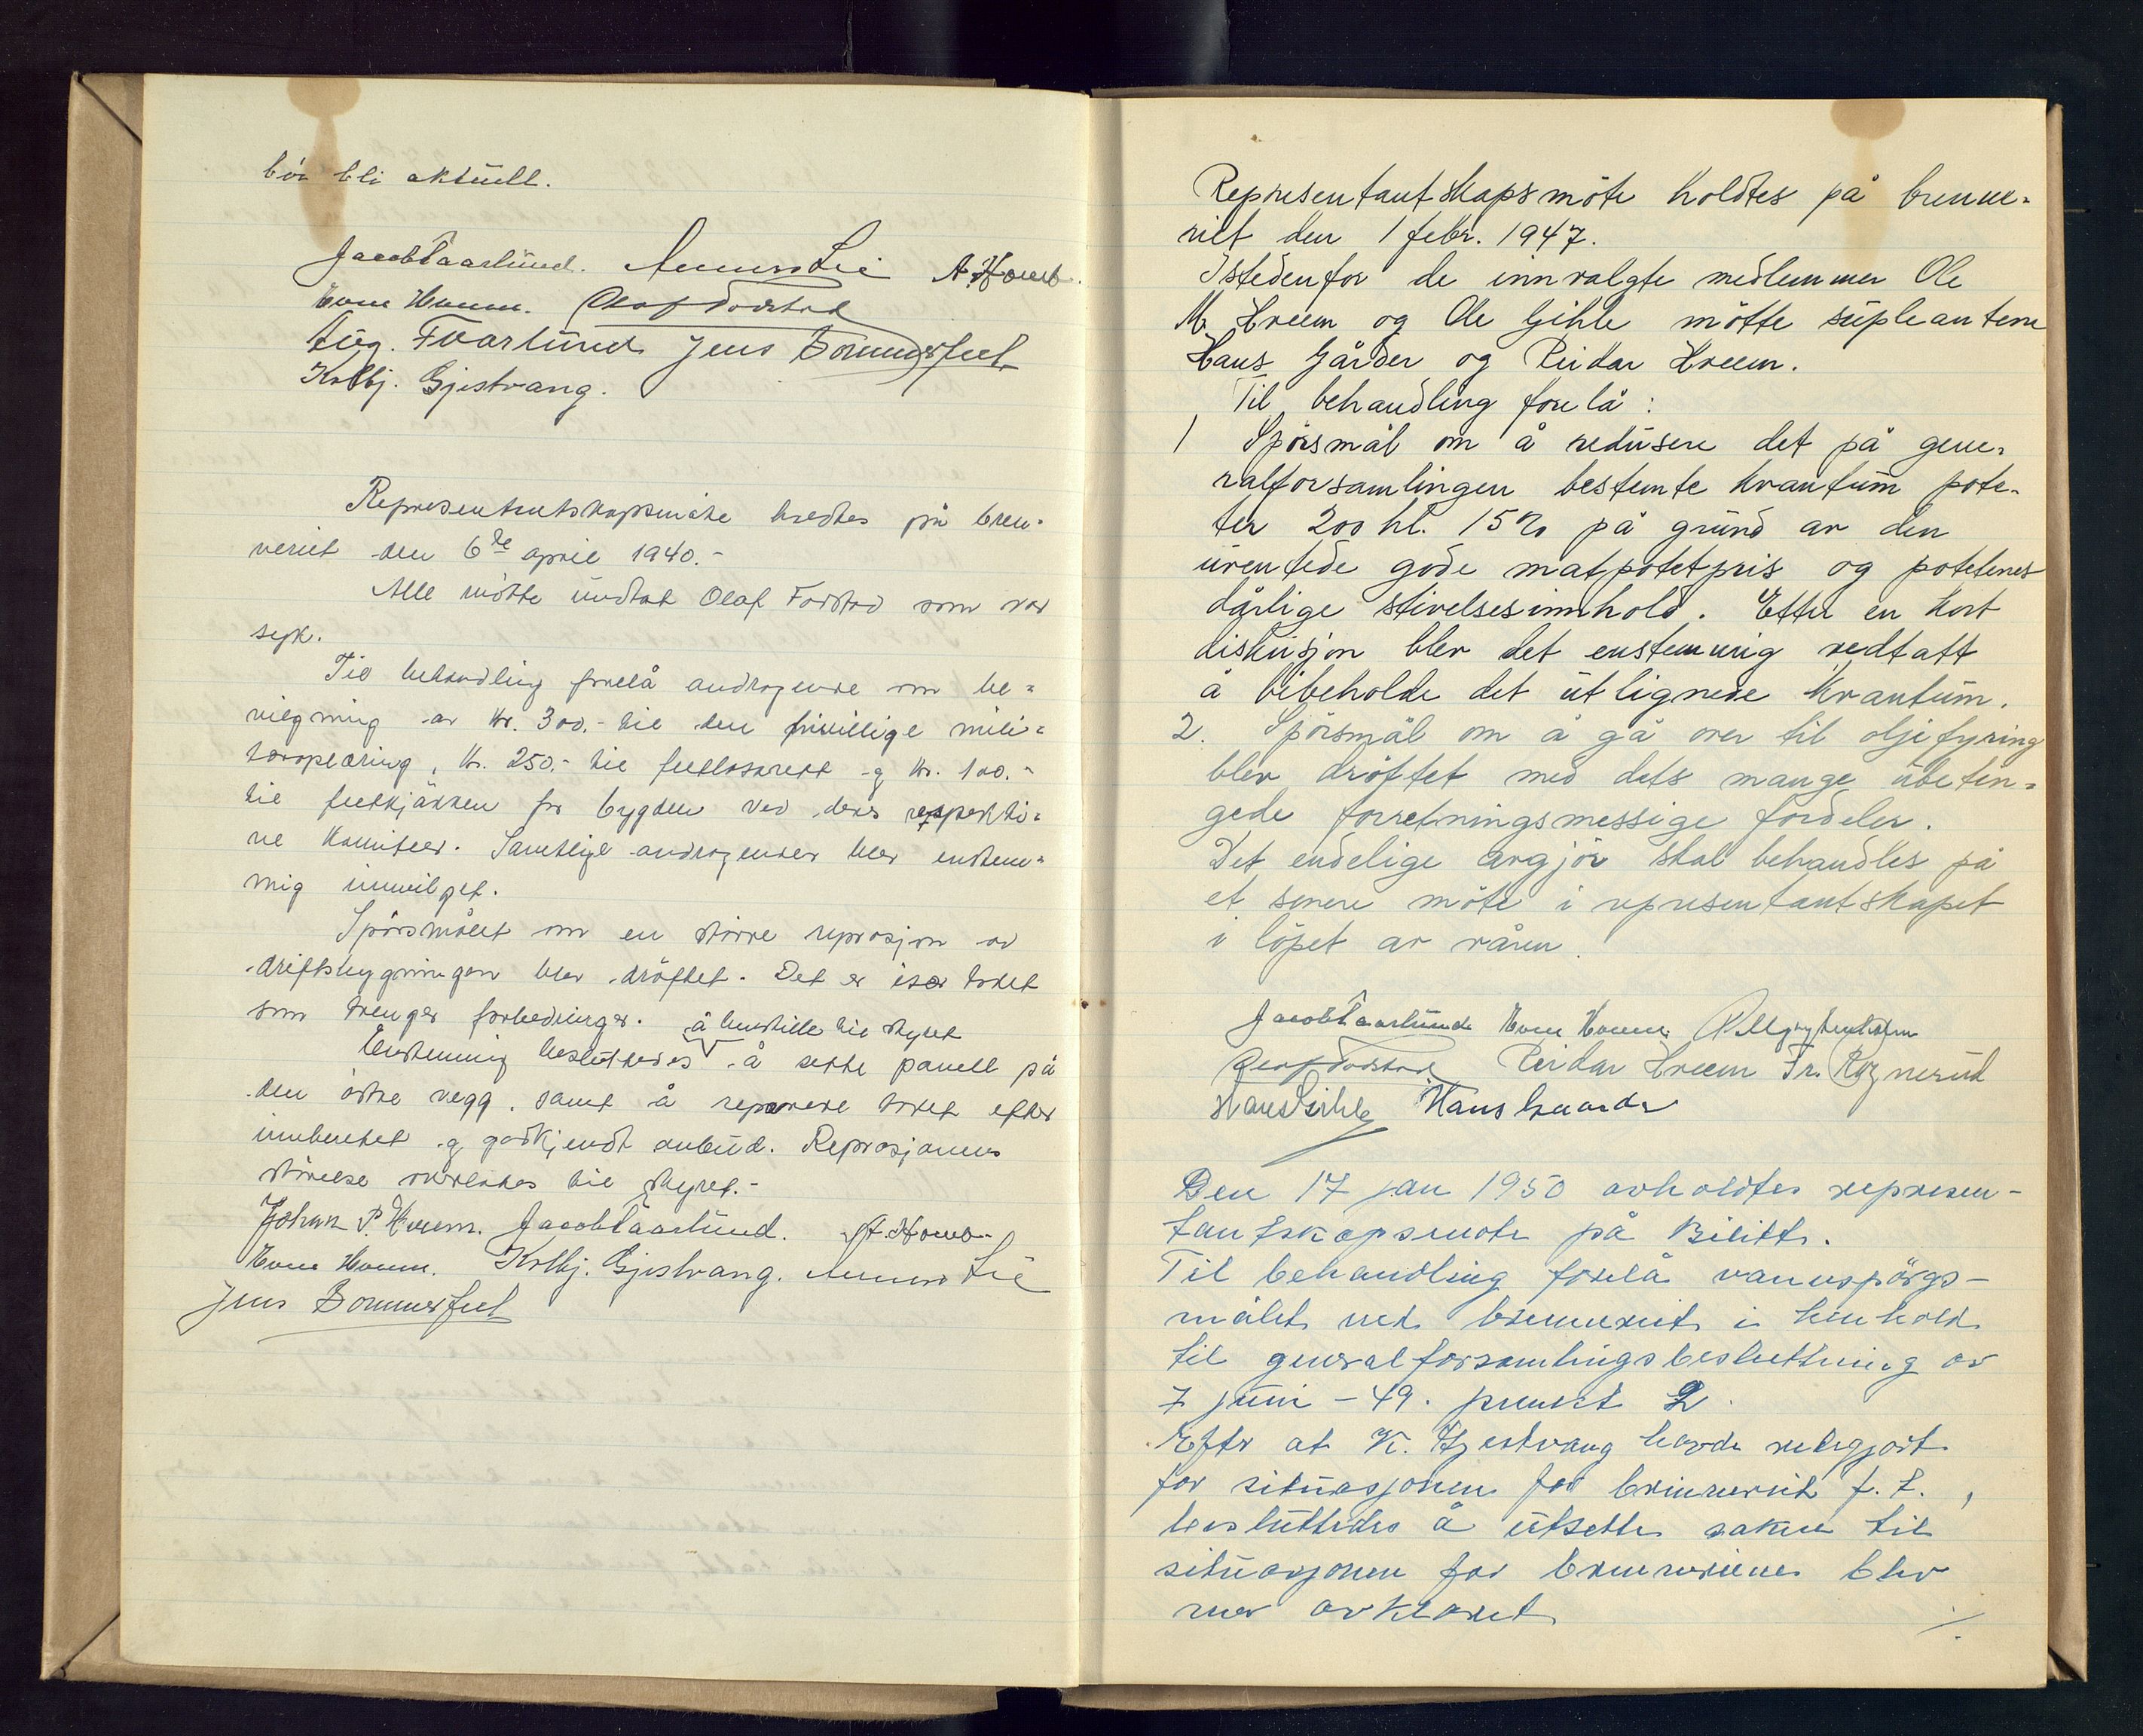 bör bli aktuell.
Jacob Taarlund. A. Houb.
Even Houm. Olaf Fodstad
Aug. Tvarlund Jens Bommerfelt
Kolbj. Gjestvang.
Representantskapsmöte holdtes på bren-
neriet den 6te april 1940.-
Alle mötte undtat Olaf Fodstad som var
syk.
Til behandling forelå andragende om be-
vilgning av kr. 300.- til den frivillige mili-
tæroplæring, kr. 250.- til feltlasarett og kr. 100.-
til feltkjökken for bygden ved deres respekti-
ve komiteer. Samtlige andragender blev enstem-
mig innvilget.
Spörsmålet om en större reprasjon av
driftsbygningen blev dröftet. Det er især taket
som trenger forbedringer.
å henstille til styret
Enstemmig besluttedes å sette panell på
den östre vegg, samt å reparere taket efter
innhentet og godkjendt anbud. Reprasjonens
störelse overlates til styret.-
Johan P. Houm. Jacob Taarlund. A. Houb.
Even Houm. Kolbj. Gjestvang.
Jens Bommerfelt
Representantskapsmöte holdtes på brenne-
riet den 1 febr. 1947.
Istedenfor de innvalgte medlemmer Ole
M. Hveem og Ole Gihle mötte supleantene
Hans Gårder og Reidar Hveem.
Til behandling forelå:
1 Spörsmål om å redusere det på gene-
ralforsamlingen bestemte kvantum pote-
ter 200 hl. 15% på grund av den
urentede gode matpotetpris og potetenes
dårlige stivelsesinnhold. Etter en kort
diskusjon blev det enstemmig vedtatt
å bibeholde det utlignede kvantum.
2. Spörsmål om å gå over til oljefyring
blev dröftet med dets mange ubetin-
gede forretningsmessige fordeler.
Det endelige avgjör skal behandles på
et senere möte i representantskapet
i löpet av våren.
Jacob Taarlund Even Houm.
Olaf Fodstad Reidar Hveem Fr. Rognerud
Hans Gihle Hans Gaarder
Den 17 jan 1950 avholdtes represen-
tantskapsmöte på Bilitt.
Til behandling forelå vannspörgs-
målet ved brenneriet i henhold
til generalforsamlingsbeslutning av
7 juni - 49. punkt 2.
Efter at K. Gjestvang havde redegjort
for situasjonen for brenneriet f. t.,
besluttedes å utsette saken til
situasjonen for brenneriene blev
mer avklaret
./.